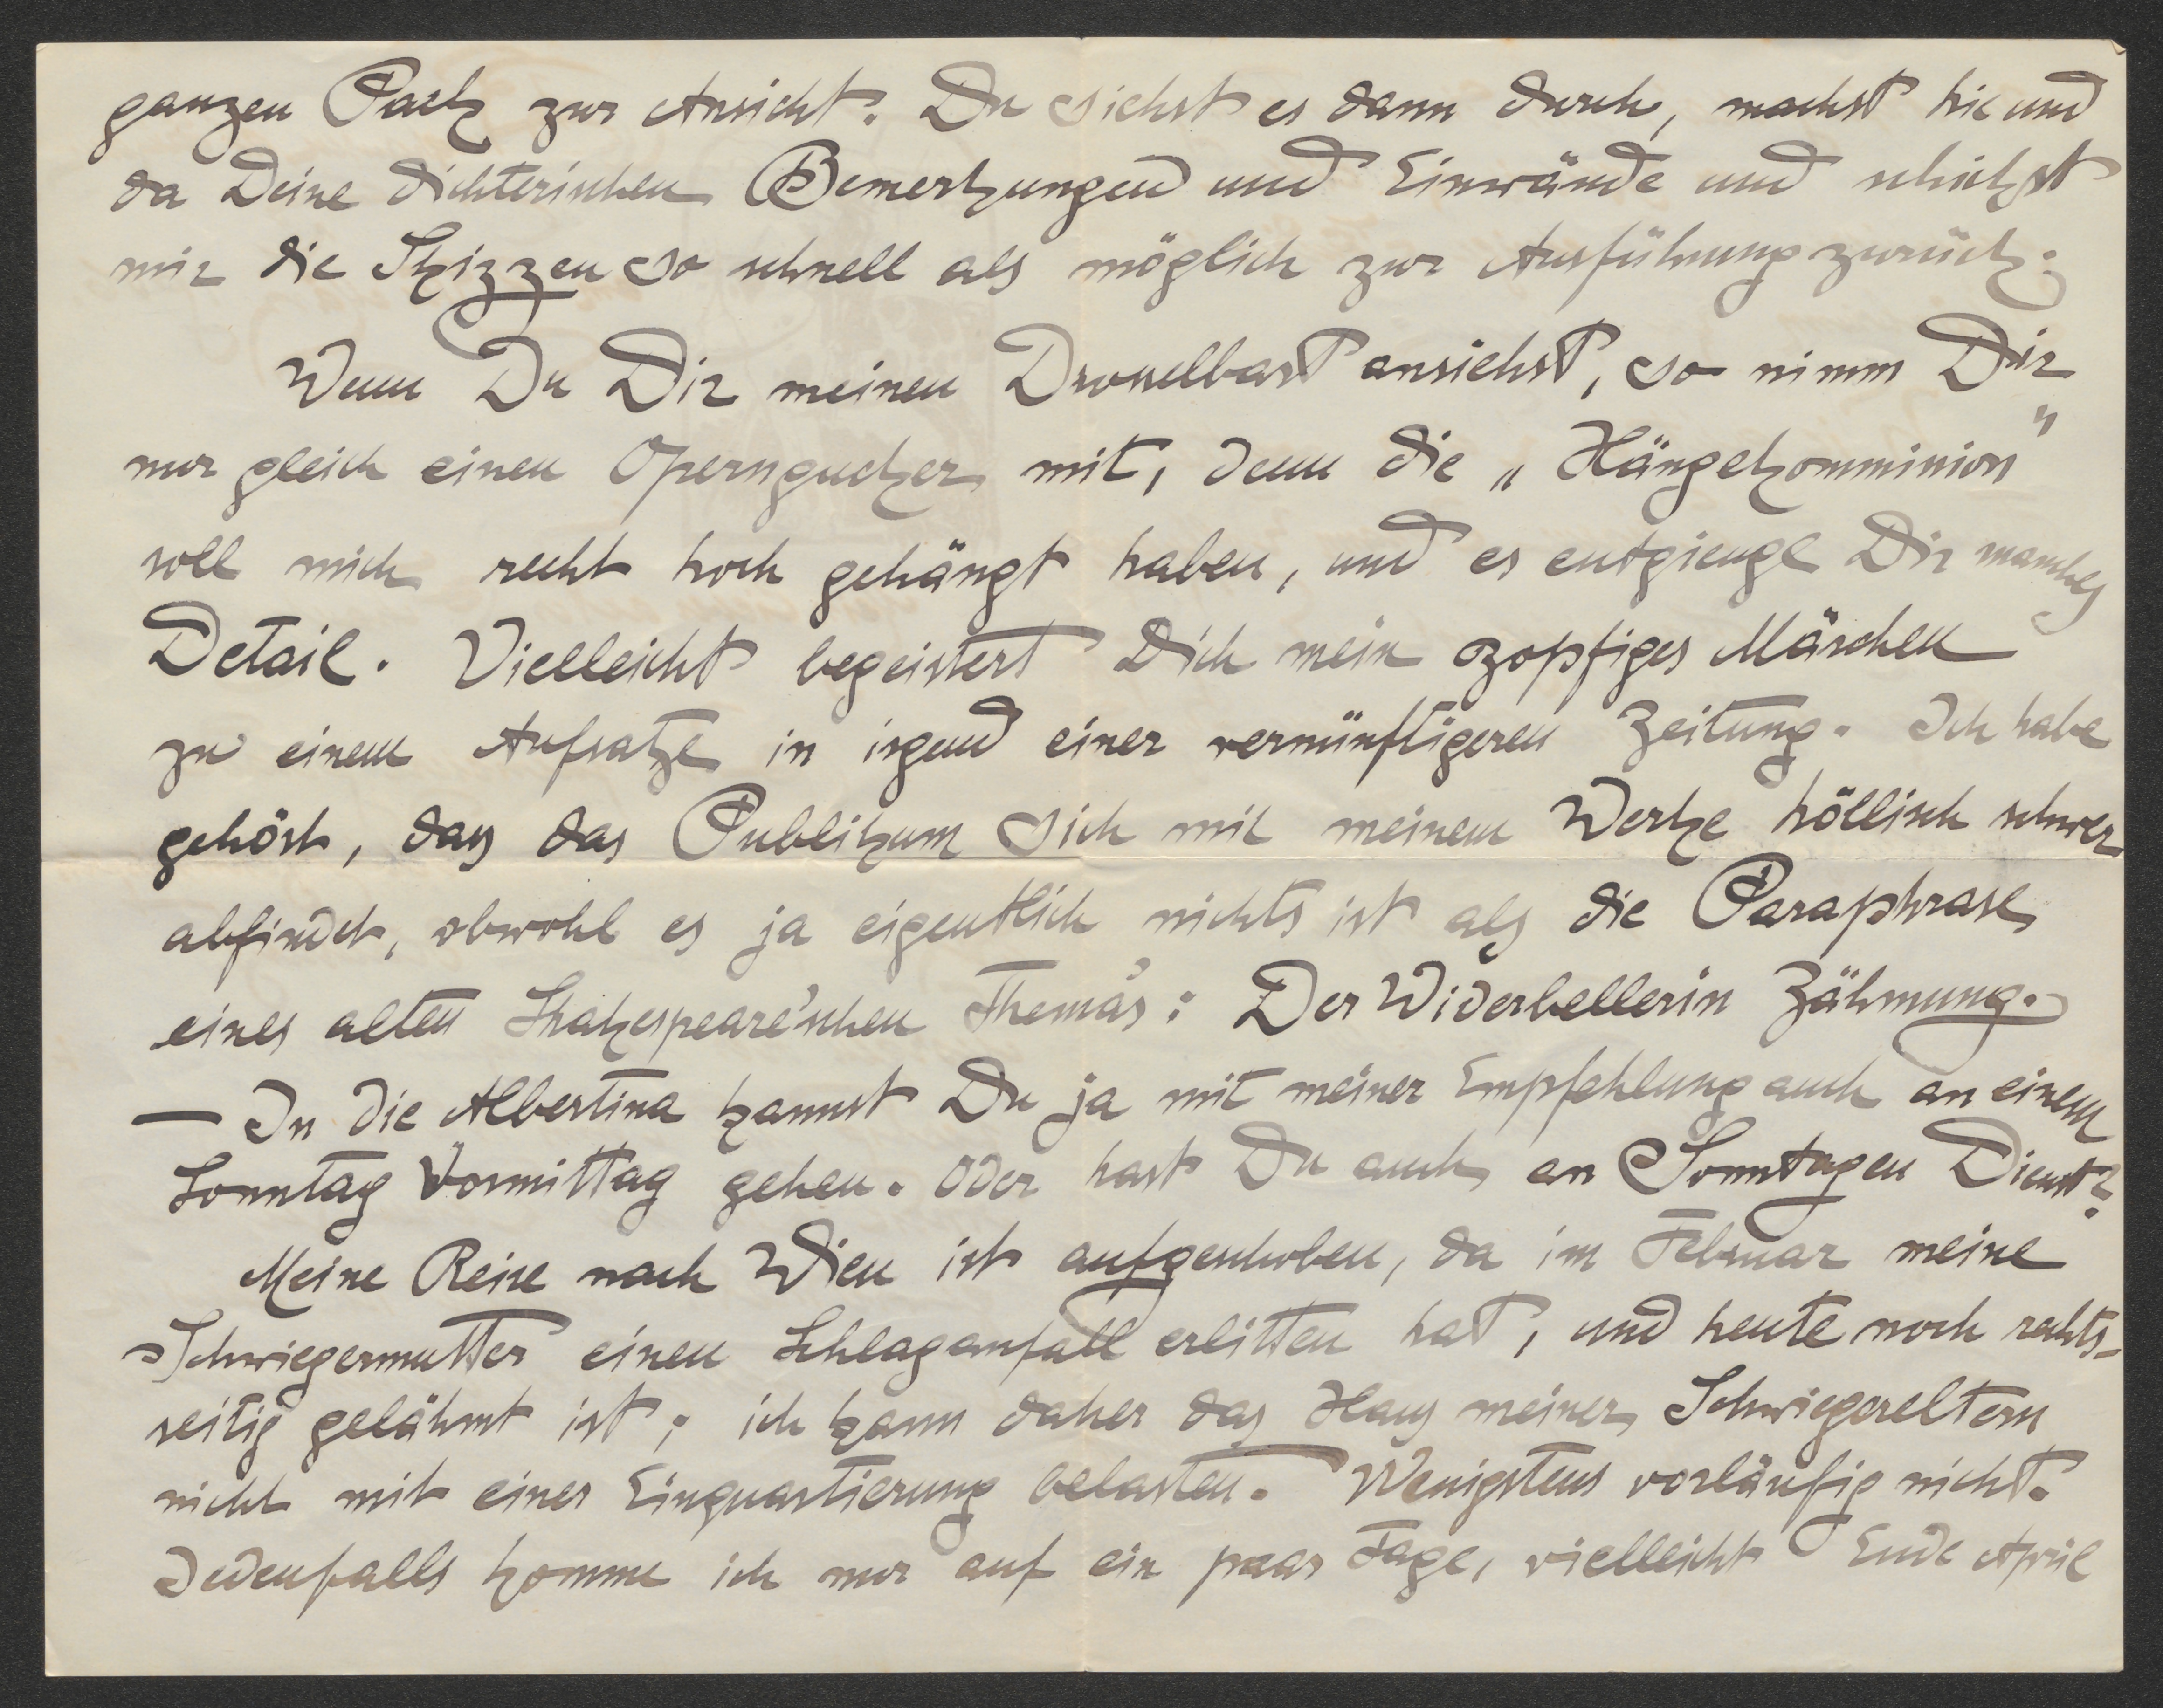 ganzen Pack zur Ansicht. Du siehst es dann durch, machst hie und
da Deine dichterischen Bemerkungen und Einwände und schickst
mir die Skizzen so schnell als möglich zur Ausführung zurück.
Wenn Du Dir meinen Drosselbart ansiehst, so nimm Dir
nur gleich einen Operngucker mit, denn die „Hängekomminion"
soll mich recht hoch gehängt haben, und es entgienge Dir manches
Detail. Vielleicht begeistert Dich mein zopfiges Märchen
zu einem Aufsatze in irgend einer vernünftigeren Zeitung. Ich habe
gehört, dass das Publikum sich mit meinem Werke höllisch schwer
abfindet, obwohl es ja eigentlich nichts ist als die Paraphrase
eines alten Shakespeare'schen Thema's: Der Widerbellerin Zähmung.
— In die Albertina kannst Du ja mit meiner Empfehlung auch an einem
Sonntag Vormittag gehen. Oder hast Du auch an Sonntagen Dienst?
Meine Reise nach Wien ist aufgeschoben, da im Februar meine
Schwiegermutter einen Schlaganfall erlitten hat, und heute noch rechts-
seitig gelähmt ist; ich kann daher das Haus meiner Schwiegereltern
nicht mit einer Einquartierung belasten. Wenigstens vorläufig nicht.
Jedenfalls komme ich nur auf ein paar Tage, vielleicht Ende April